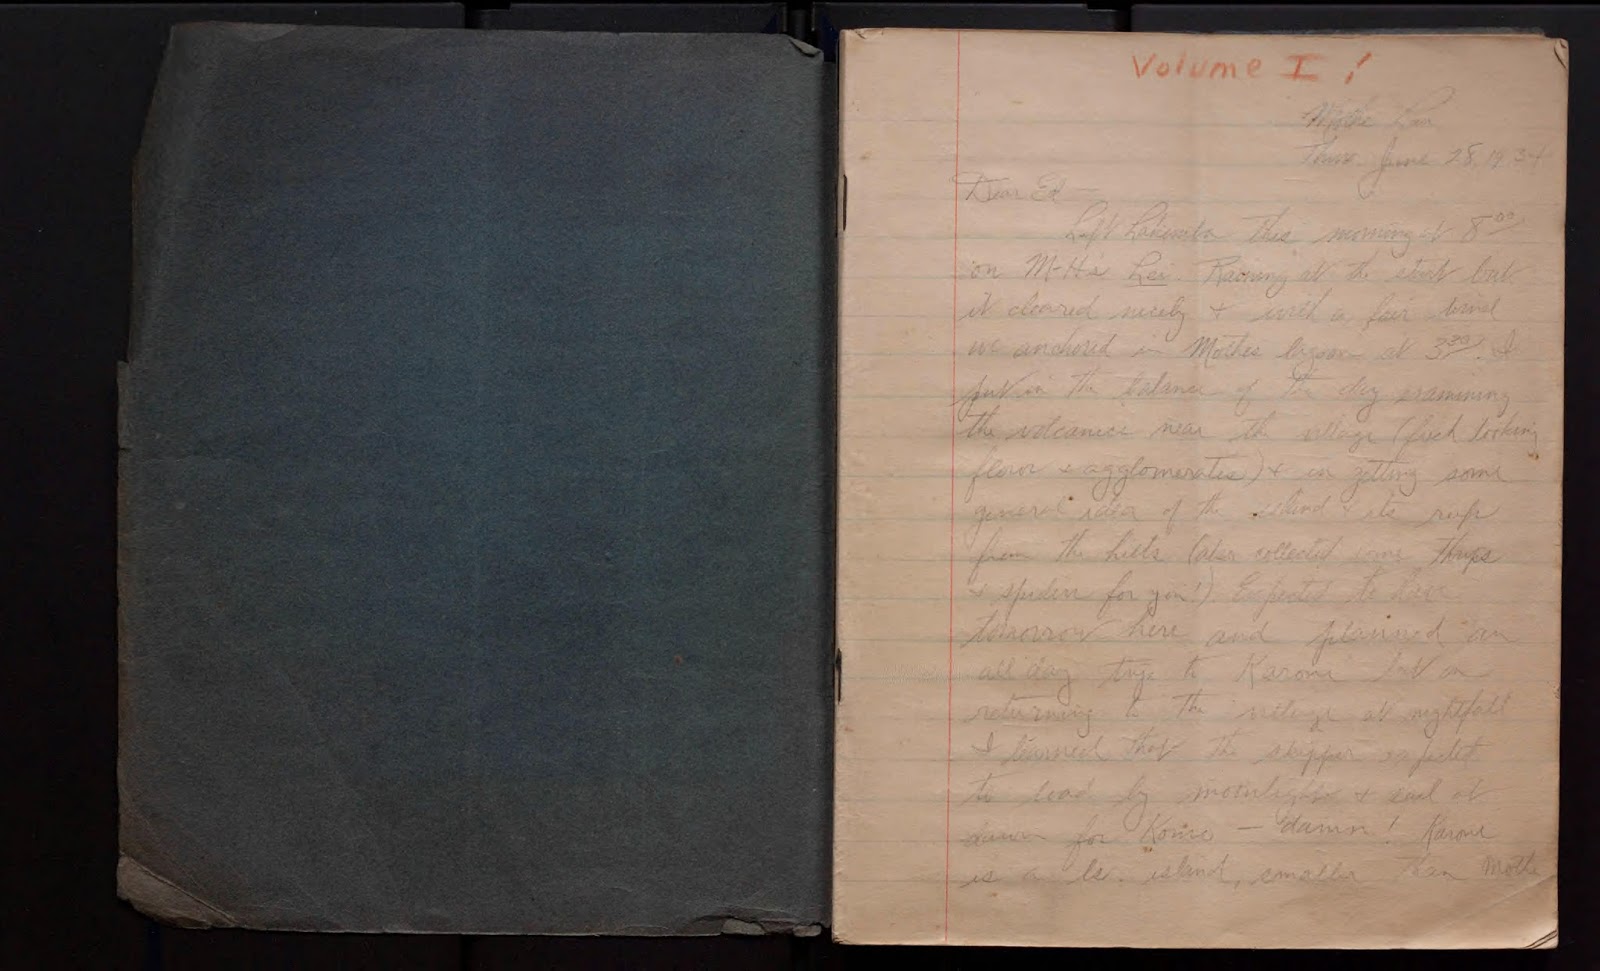 Volume I!
Mothe Lau
Thurs. June 28, 1934
Dear Ed
Left Lakemba this morning at 8⁰⁰
on M-H's Lei. Raining at the start but
it cleared nicely & with a fair wind
we anchored in Mothe lagoon at 3³⁰. I
put in the balance of the day examining
the volcanics near the village (fresh looking
flows & agglomerates) & in getting some
general idea of the island & its reefs
from the hills (also collected some
& spiders for you!). Expected to have
tomorrow here and planned an
all day trip to Karoni but on
returning to the village at nightfall
I learned that the skipper expected
to load by moonlight & sail at
dawn for Komo — damn! Karoni
is a ls. island, smaller than Mothe